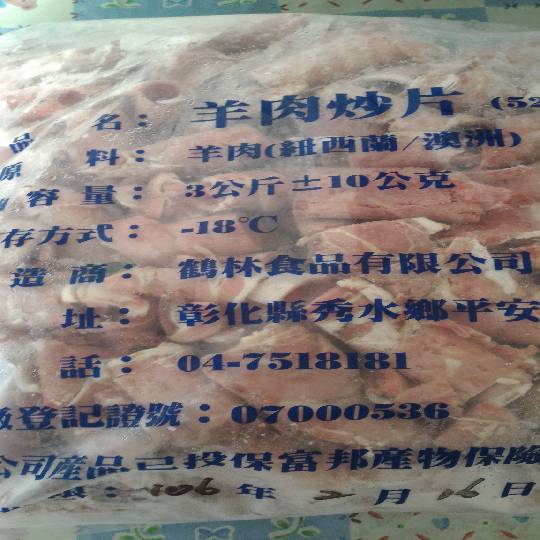 品 名： 羊肉炒片 (52
原 料： 羊肉(紐西蘭/澳洲)
容量： 3公斤±10公克
存方式： -18℃
造商： 鶴林食品有限公司
址： 彰化縣秀水鄉平安
話： 04-7518181
登記證號： 07000536
公司產品已投保富邦產物保險
： 106 年 2 月 16 日